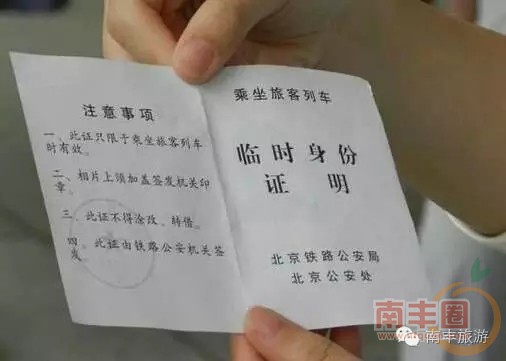 注意事项
一、此证只限于乘坐旅客列车
时有效。
二、相片上须加盖签发机关印
章。
三、此证不得涂改、转借。
四、此证由铁路公安机关签
发。
乘坐旅客列车
临时身份
证明
北京铁路公安局
北京公安处
南丰圈
南丰旅游